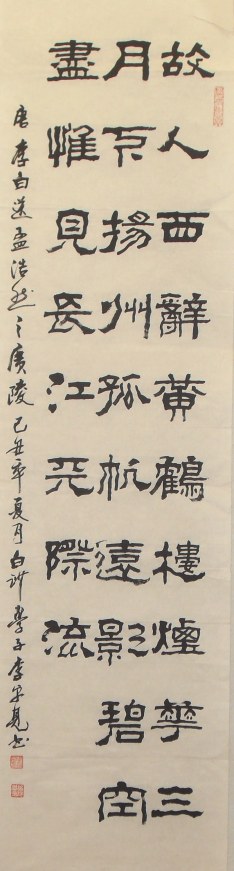 故人西辭黃鶴樓煙華三
月下揚州孤帆遠影碧空
盡惟見長江天際流
唐李白送孟浩然之廣陵己丑年夏月白 學子李 書